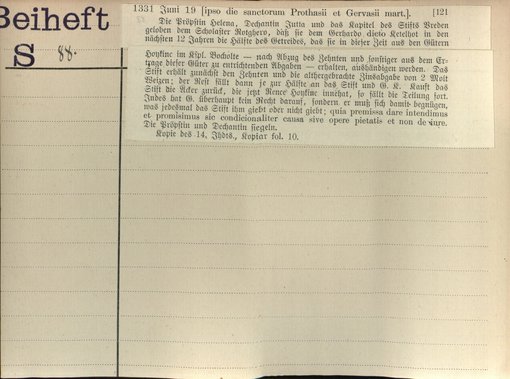 Beiheft
S 88.
1331 Juni 19 [ipso die sanctorum Prothasii et Gervasii mart.]. [121
Die Pröpstin Helena, Dechantin Jutta und das Kapitel des Stifts Vreden
geloben dem Scholaster Rotghero, daß sie dem Gerhardo dicto Ketelhot in den
nächsten 12 Jahren die Hälfte des Getreides, das sie in dieser Zeit aus den Gütern
Hoykinc im Kspl. Bocholte — nach Abzug des Zehnten und sonstiger aus dem Er-
trage dieser Güter zu entrichtenden Abgaben — erhalten, aushändigen werden. Das
Stift erhält zunächst den Zehnten und die althergebrachte Zinsabgabe von 2 Molt
Weizen; der Rest fällt dann je zur Hälfte an das Stift und G. K. Kauft das
Stift die Äcker zurück, die jetzt Henre Hoykinc innehat, so fällt die Teilung fort.
Indes hat G. überhaupt kein Recht darauf, sondern er muß sich damit begnügen,
was jedesmal das Stift ihm giebt oder nicht giebt; quia premissa dare intendimus
et promisimus sic condicionaliter causa sive opere pietatis et non de iure.
Die Pröpstin und Dechantin siegeln.
Kopie des 14. Jhdts., Kopiar fol. 10.